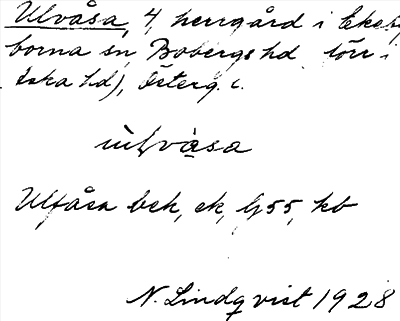 Ulvåsa, 4, herrgård i Ekeby
borna sn, Bobergs hd (örr i
Aska hd), Österg. l.
ùlvàsa
Ulfåsa bek, ek, G55, kb
N. Lindqvist 1928